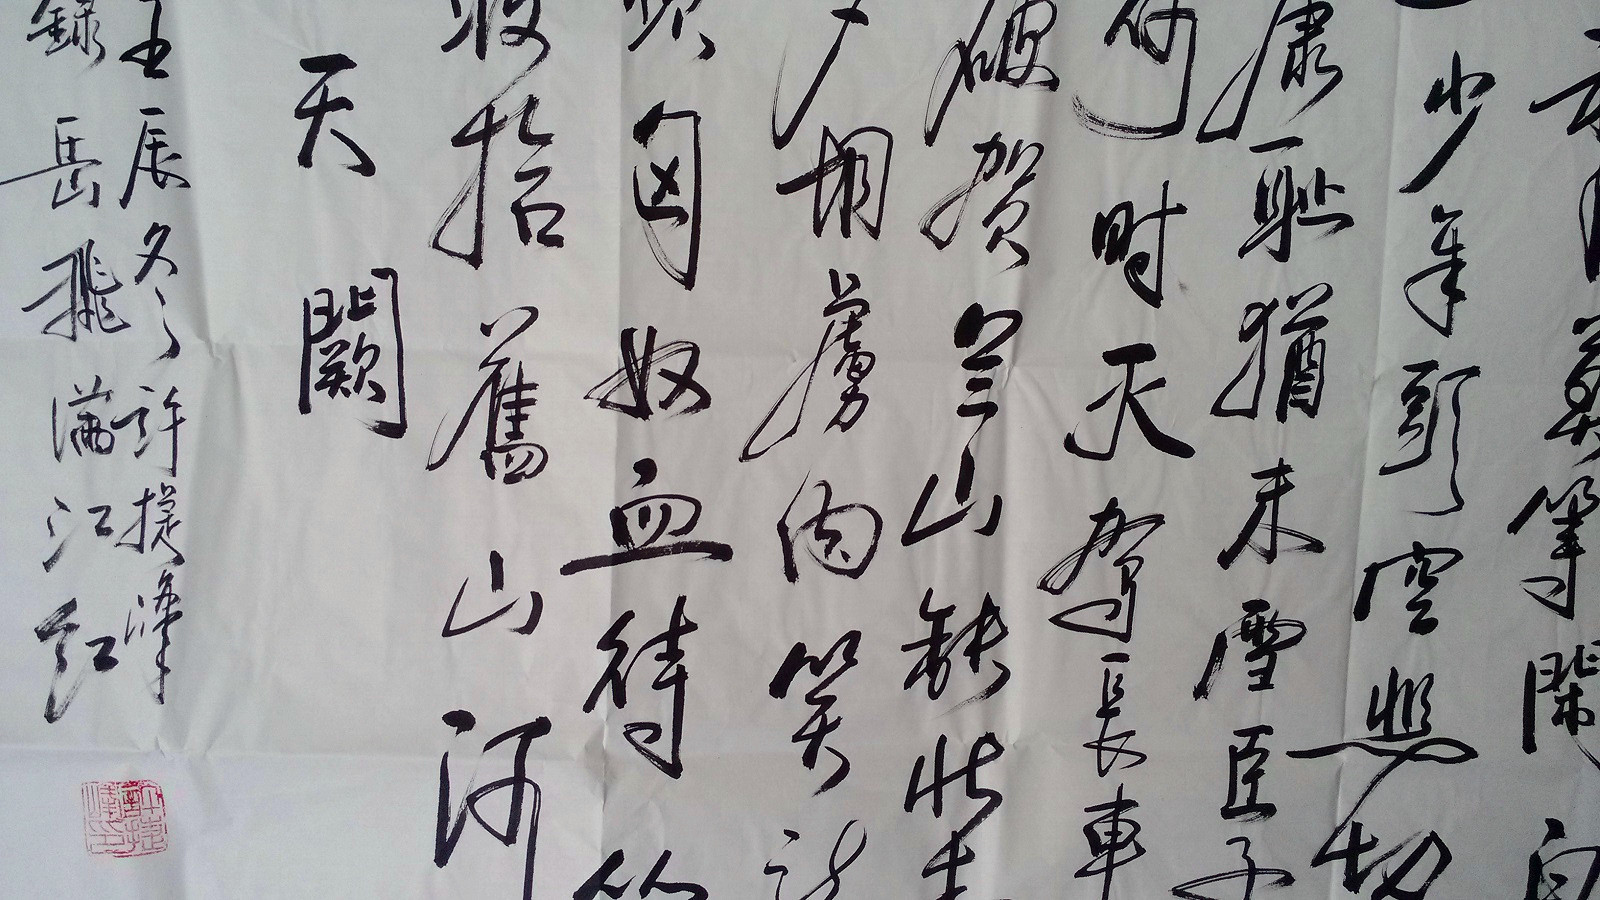 莫等閑白
少年頭空悲切
康恥猶未雪臣子
何時天駕長車
破賀兰山缺壮志
夕胡虜肉笑
頭匈奴血待從
收拾舊山河
天闕
壬辰冬許捷峰
錄岳飛滿江紅